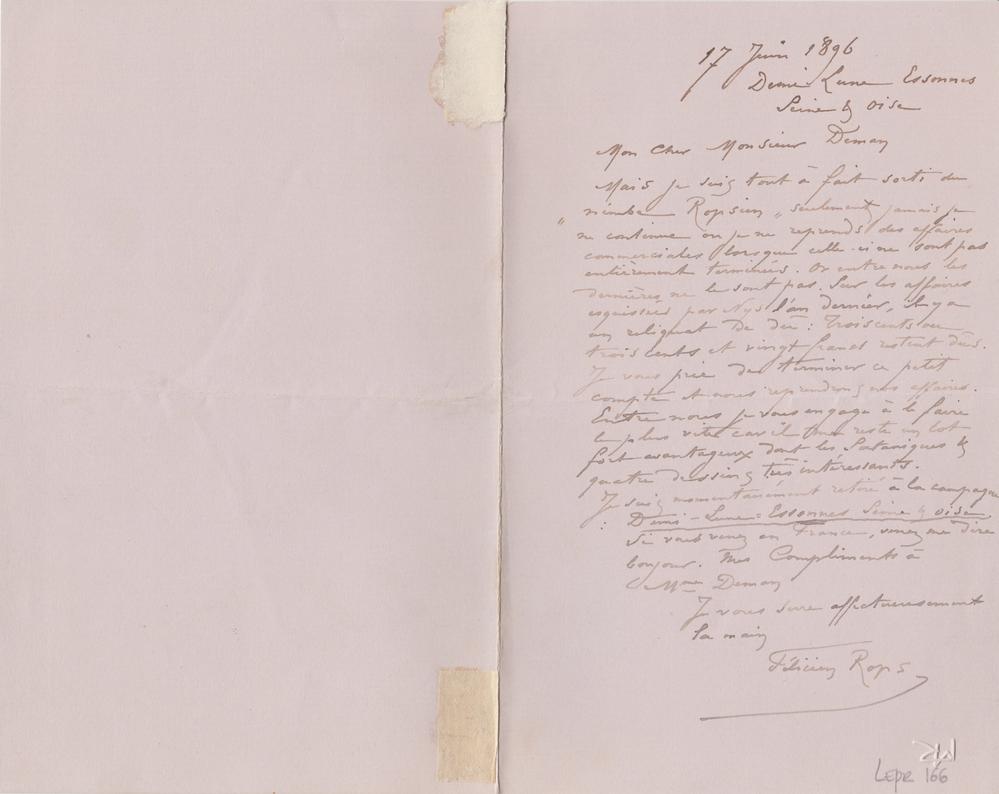 17 Juin 1896
Demi-Lune Essonnes
Seine & Oise
Mon Cher Monsieur Deman
Mais je suis tout à fait sorti du
"nimbe Ropsien" seulement jamais je
ne continue ou je ne reprends des affaires
commerciales lorsque celle-ci ne sont pas
entièrement terminées. Or entre nous les
dernières ne le sont pas. Sur les affaires
esquissées par Nys l'an dernier, il y a
un reliquat de dû : Trois cents ou
trois cents et vingt francs restent dûs.
Je vous prie de terminer ce petit
compte et nous reprendrons nos affaires.
Entre nous je vous engage à le faire
le plus vite car il me reste un lot
fort avantageux dont les Sataniques &
quatre dessins très intéressants.
Je suis momentanément retiré à la campagne
: Demi-Lune = Essonnes Seine & Oise
Si vous venez en France, venez me dire
bonjour. Mes Compliments à
Mme Deman
Je vous serre affectueusement
la main
Félicien Rops
LEpr 166